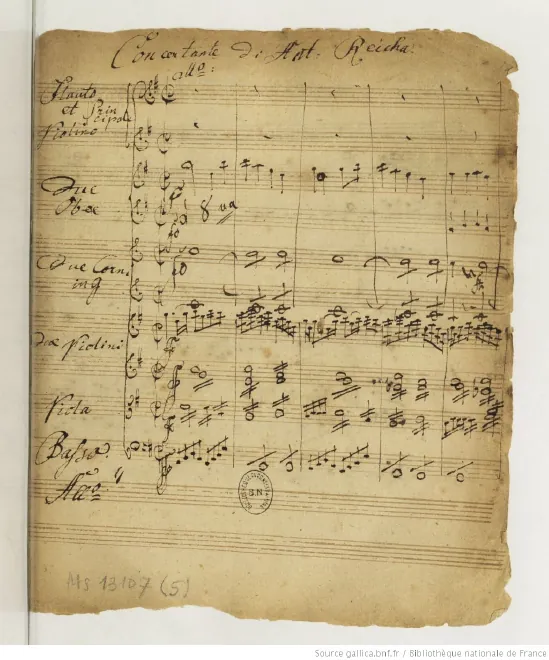 Concertante di Ant. Reicha.
All.o:
Flauto
et Prin
cipale
Violino
Due
Oboe
8va
Due Corni
in g
due Violini
Viola
Basso
All.o
B.N
Ms 13107 (5)
Source gallica.bnf.fr / Bibliothèque nationale de France